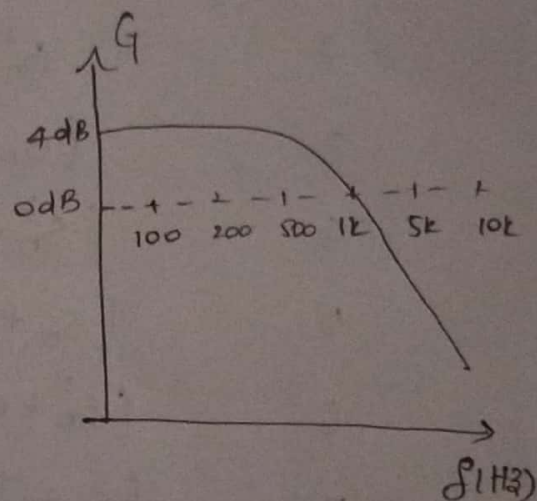 G
4dB
0dB
100 200 500 1k 5k 10k
f(Hz)